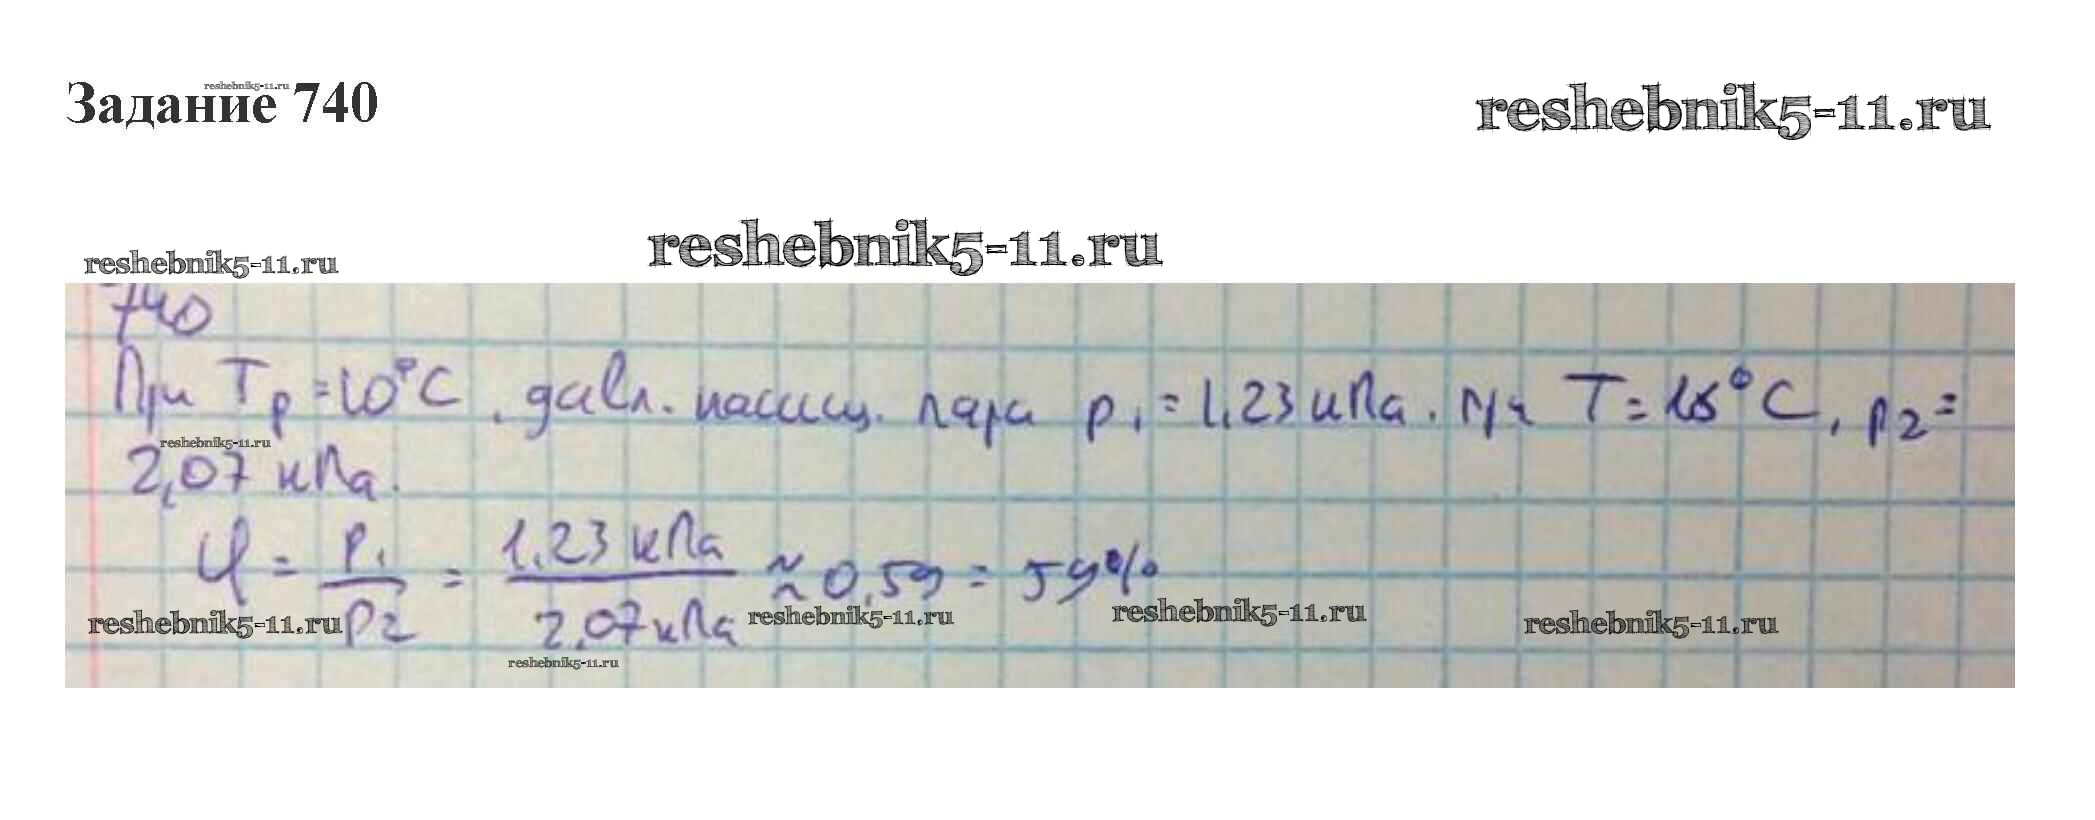 Задание 740
reshebnik5-11.ru
reshebnik5-11.ru
reshebnik5-11.ru
reshebnik5-11.ru
740
При Tр = 10°C, давл. насыщ. пара p₁ = 1,23 кПа. При T = 18°C, p₂ =
reshebnik5-11.ru
2,07 кПа.
φ = p₁/p₂ = 1,23 кПа/2,07 кПа ≈ 0,59 = 59%
reshebnik5-11.ru
reshebnik5-11.ru
reshebnik5-11.ru
reshebnik5-11.ru
reshebnik5-11.ru